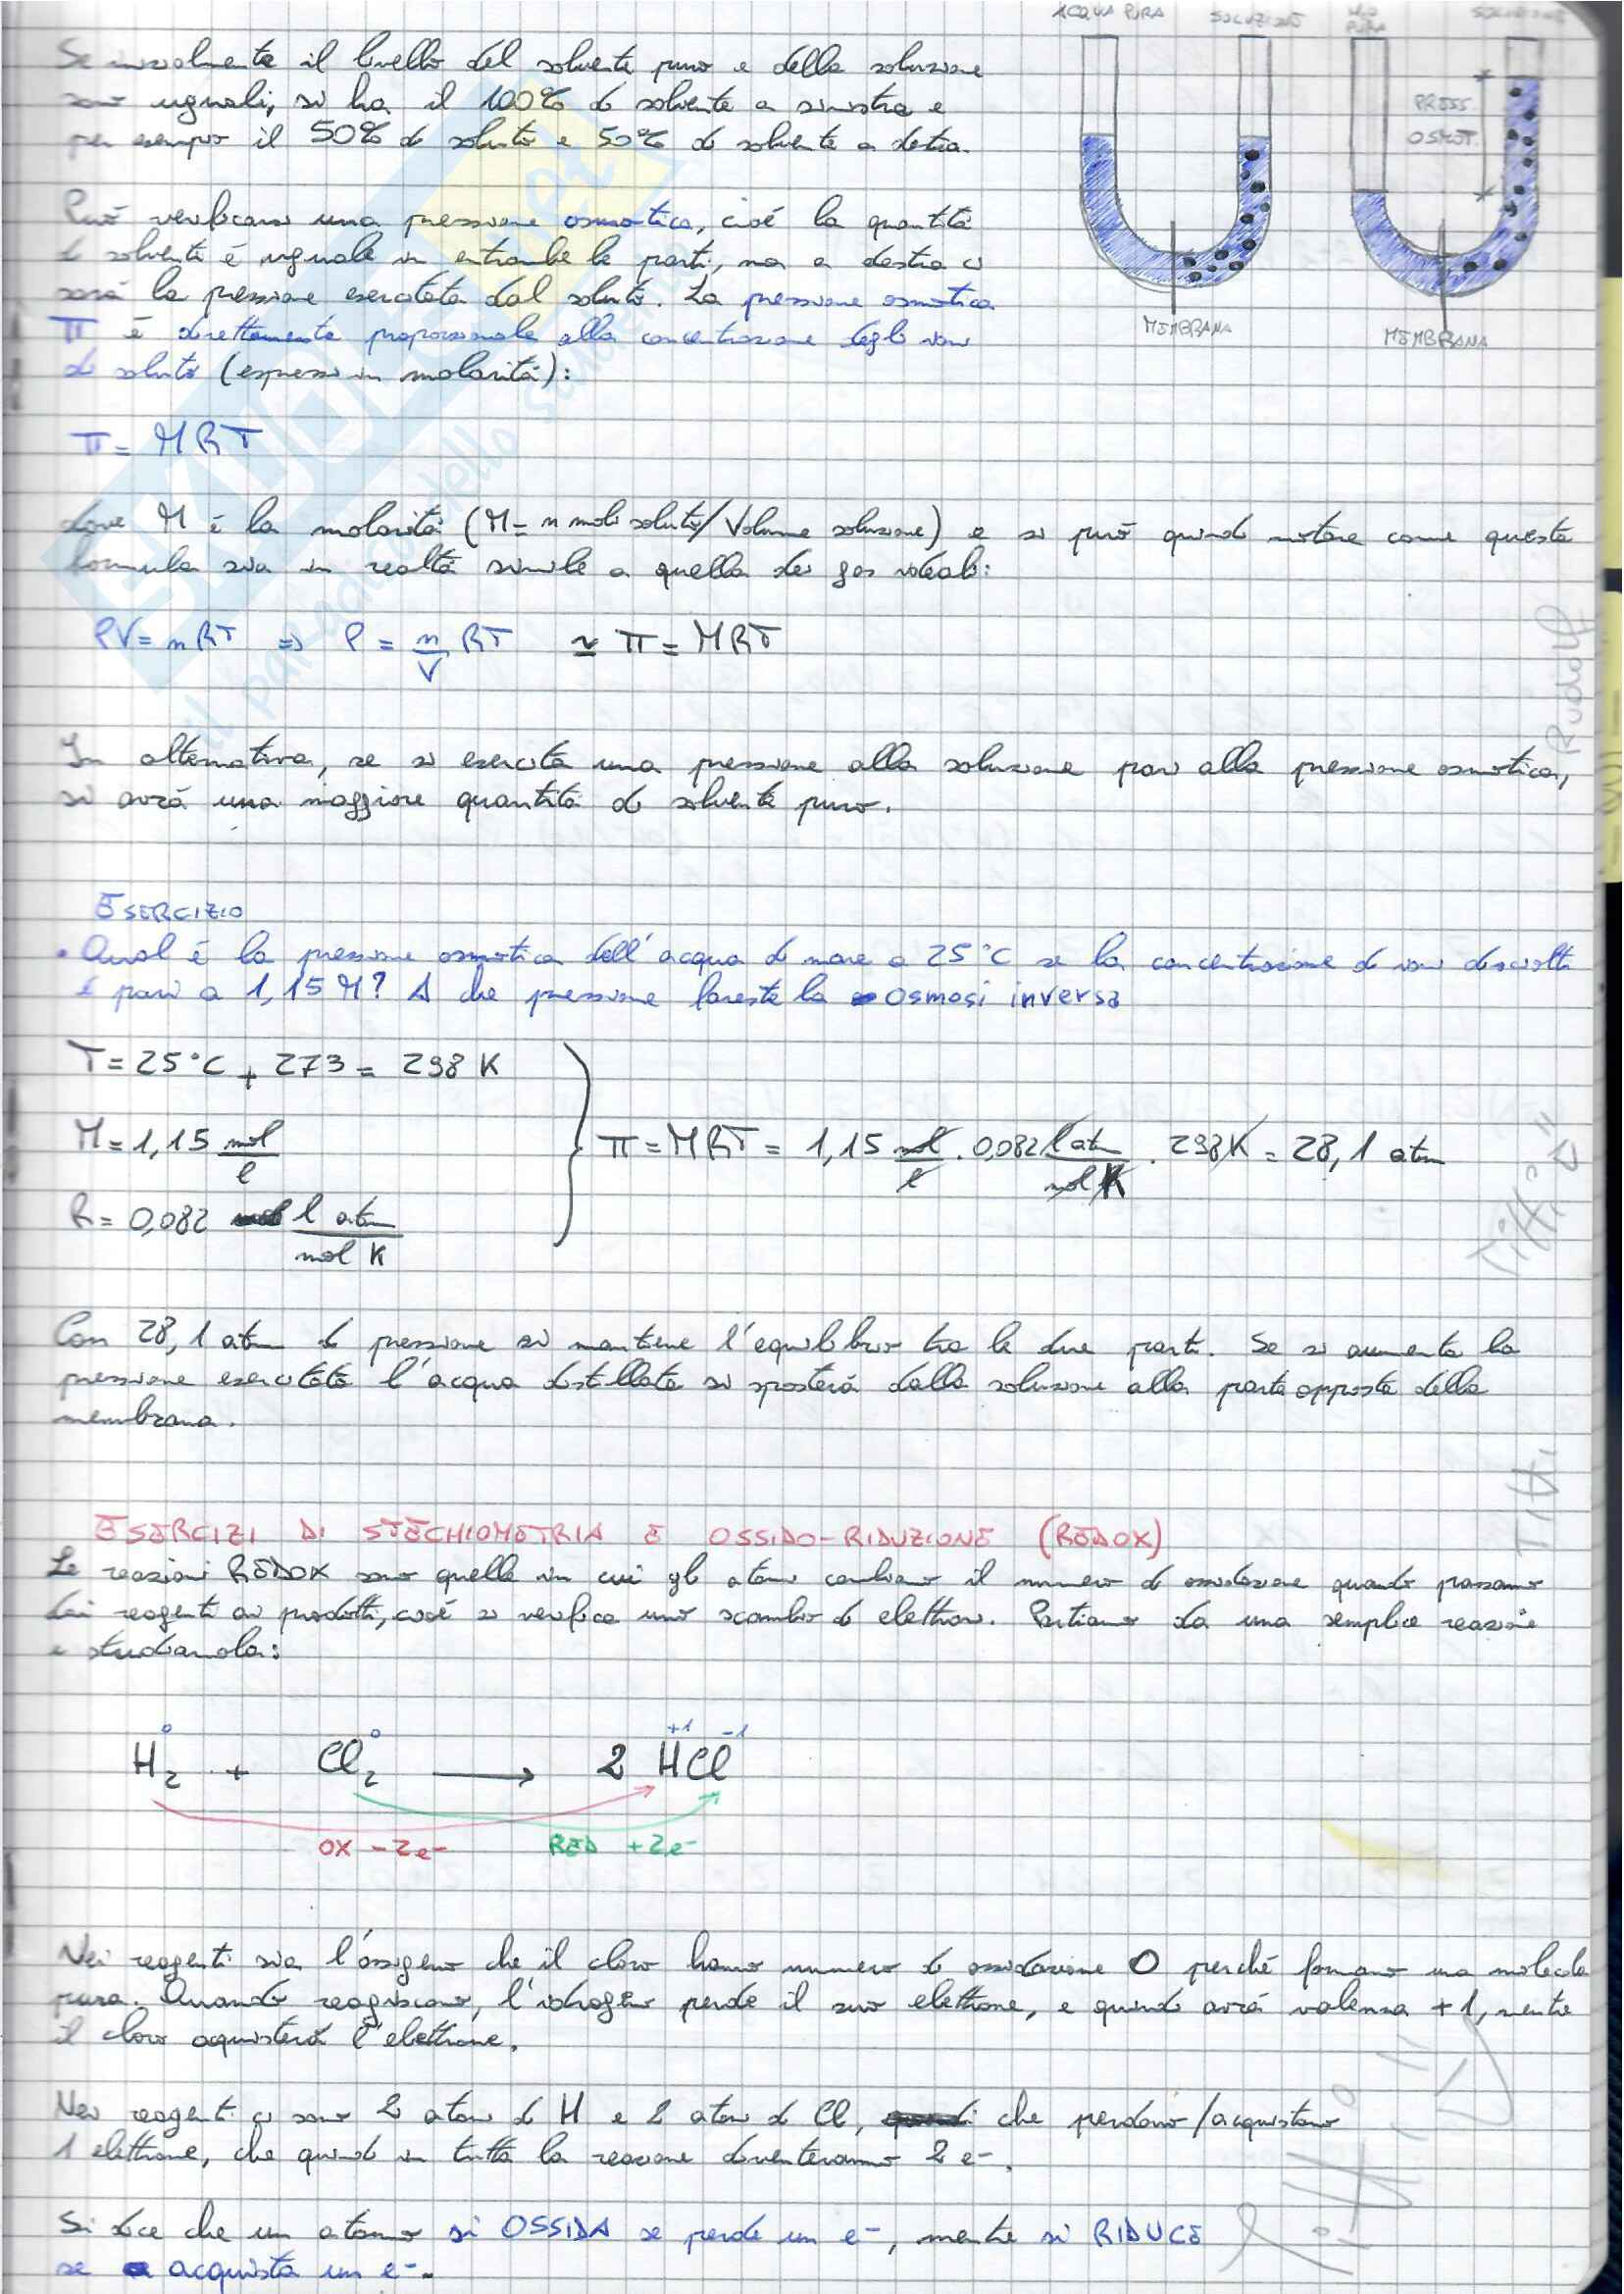 ACQUA PURA SOLUZIONE H2O PURA SOLUZIONE
Se inizialmente il livello del solvente puro e della soluzione
sono uguali, si ha il 100% di solvente a sinistra e
per esempio il 50% di soluto e 50% di solvente a destra.
PRESS.
OSMOT.
Può verificarsi una pressione osmotica, cioé la quantità
di solvente é uguale in entrambe le parti, ma a destra ci
sarà la pressione esercitata dal soluto. La pressione osmotica
π é direttamente proporzionale alla concentrazione degli ioni
di soluto (espressi in molarità):
MEMBRANA MEMBRANA
π = MRT
dove M é la molarità (M = n moli soluto/Volume soluzione) e si può quindi notare come questa
formula sia in realtà simile a quella dei gas ideali:
PV = nRT ⇒ P = n/V RT ≃ π = MRT
In alternativa, se si esercita una pressione alla soluzione pari alla pressione osmotica,
si avrà una maggiore quantità di solvente puro.
ESERCIZIO
• Qual é la pressione osmotica dell'acqua di mare a 25°C se la concentrazione di ioni disciolti
é pari a 1,15 M? A che pressione fareste la osmosi inversa
T = 25°C + 273 = 298 K
M = 1,15 mol/l
π = MRT = 1,15 mol/l · 0,082 l atm/mol K · 298 K = 28,1 atm
R = 0,082 l atm/mol K
Con 28,1 atm di pressione si mantiene l'equilibrio tra le due parti. Se si aumenta la
pressione esercitata l'acqua distillata si sposterà dalla soluzione alla parte opposta della
membrana.
ESERCIZI DI STECHIOMETRIA E OSSIDO-RIDUZIONE (REDOX)
Le reazioni REDOX sono quelle in cui gli atomi cambiano il numero di ossidazione quando passano
dai reagenti ai prodotti, cioé si verifica uno scambio di elettroni. Partiamo da una semplice reazione
e studiamola:
0 0 +1 -1
H2 + Cl2 → 2 HCl
OX -2e- RED +2e-
Nei reagenti sia l'ossigeno che il cloro hanno numero di ossidazione 0 perché formano una molecola
pura. Quando reagiscono, l'idrogeno perde il suo elettrone, e quindi avrà valenza +1, mentre
il cloro acquisterà l'elettrone.
Nei reagenti ci sono 2 atomi di H e 2 atomi di Cl, che perdono/acquistano
1 elettrone, che quindi in tutta la reazione diventeranno 2 e-.
Si dice che un atomo si OSSIDA se perde un e-, mentre si RIDUCE
se acquista un e-.
Rudolf
il paradiso dello studente